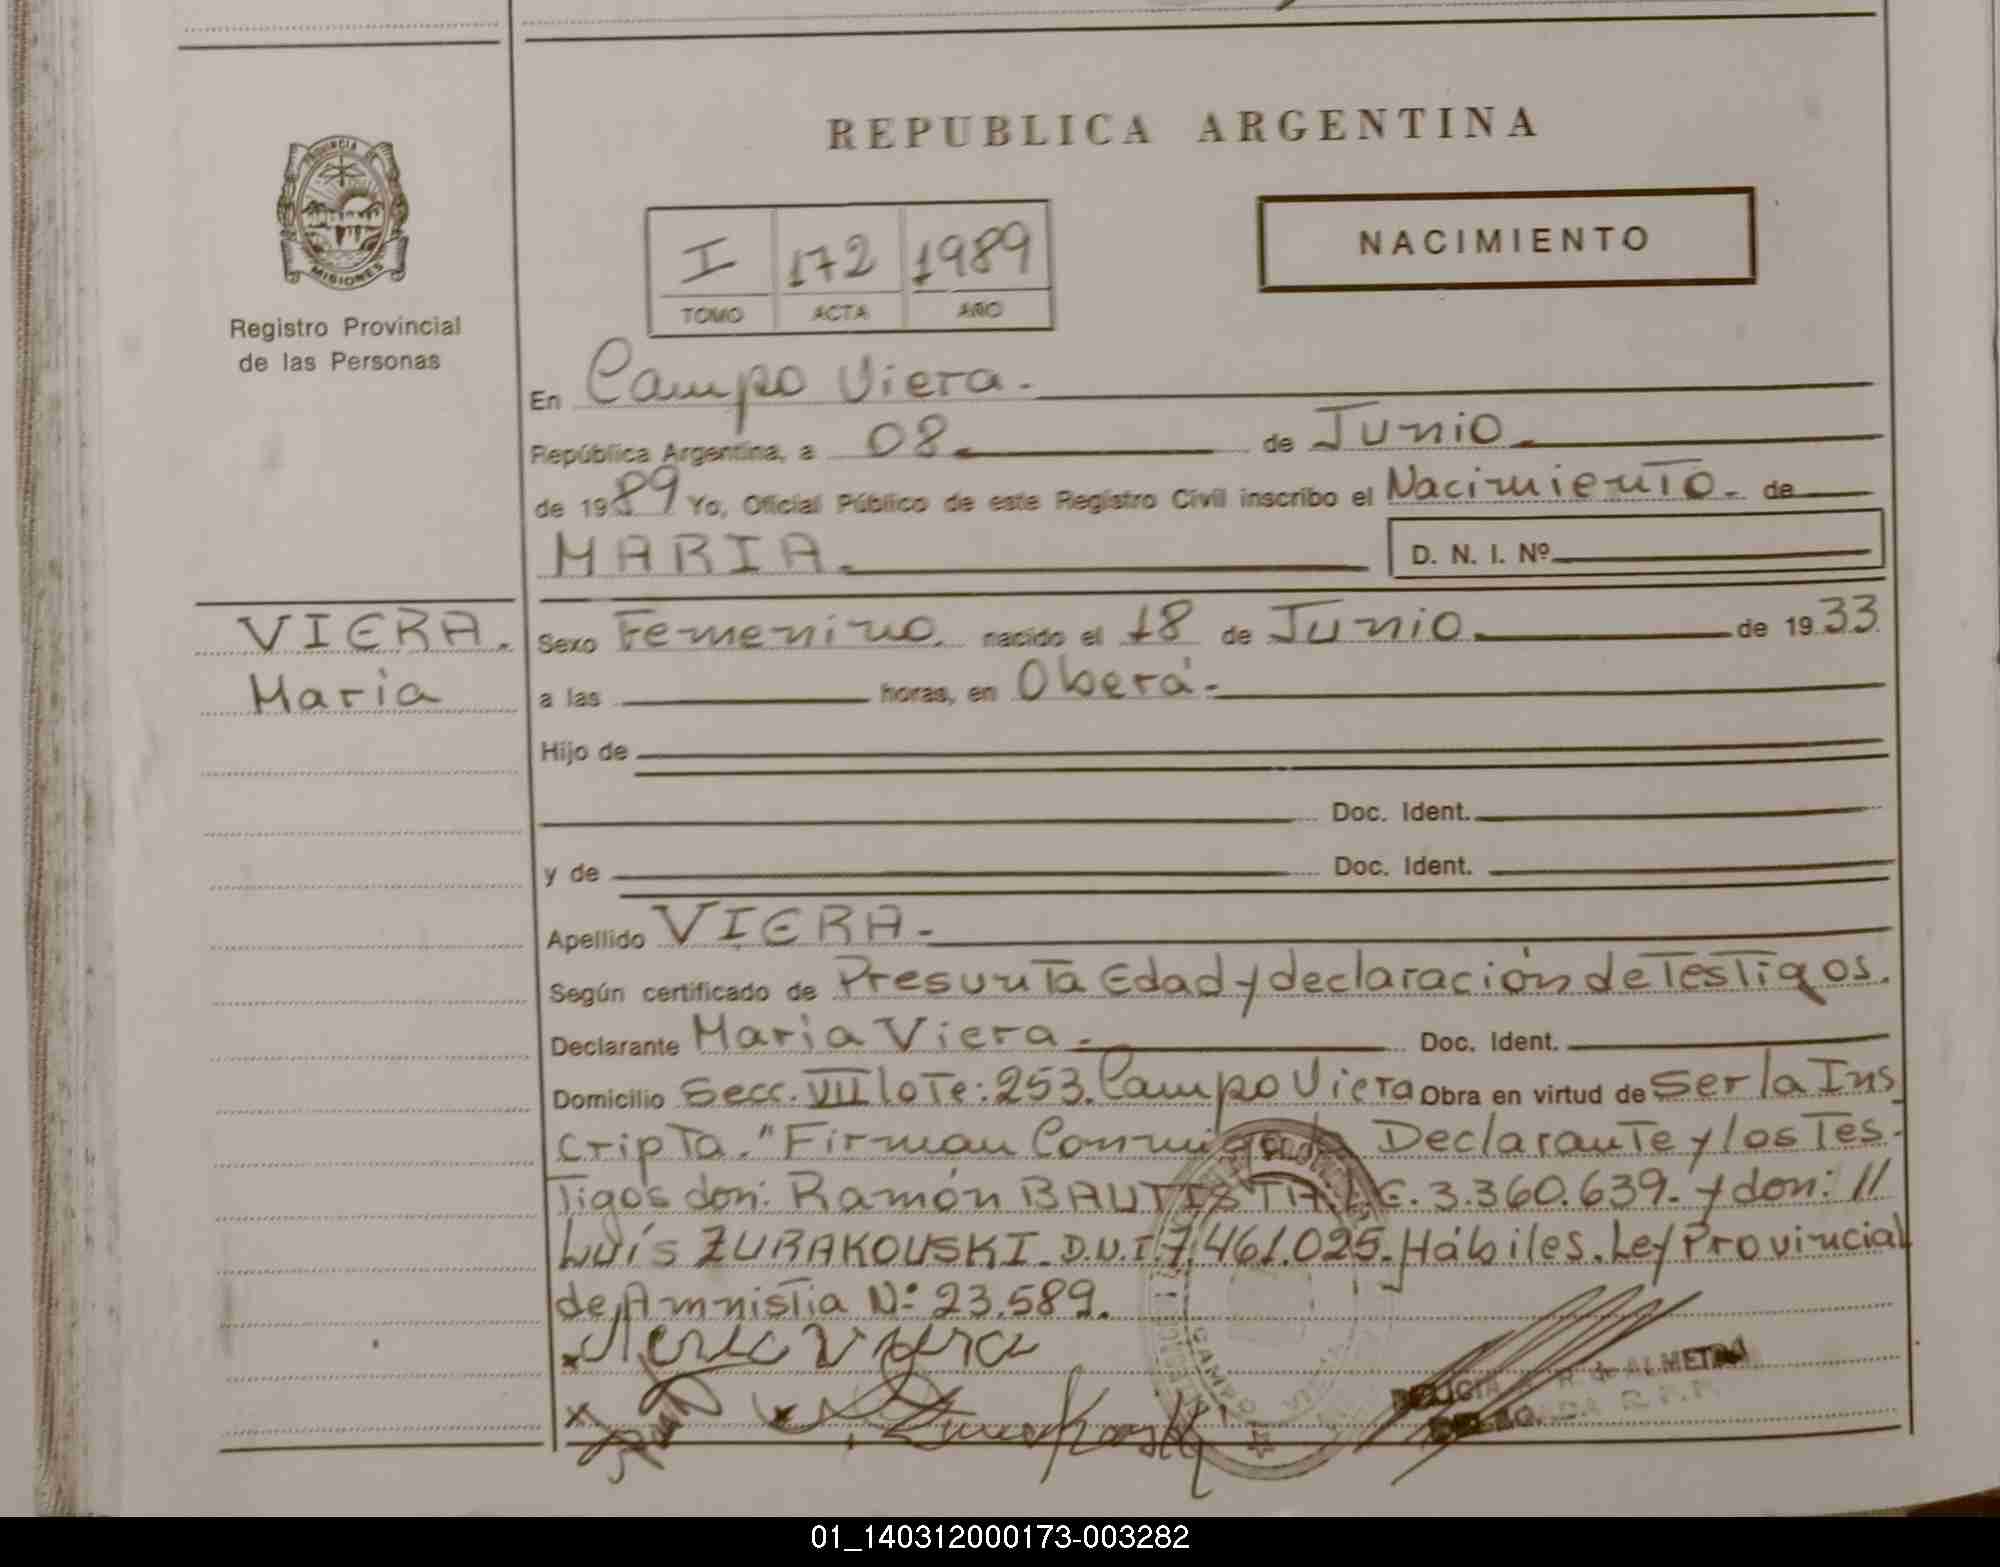 PROVINCIA DE
MISIONES
Registro Provincial
de las Personas
REPUBLICA ARGENTINA
I 172 1989
TOMO ACTA AÑO
NACIMIENTO
En Campo Viera.
República Argentina, a 08 de Junio
de 1989 Yo, Oficial Público de este Registro Civil inscribo el Nacimiento. de
MARIA. D. N. I. Nº
VIERA.
Maria
Sexo Femenino. nacido el 18 de Junio de 1933
a las horas, en Oberá.
Hijo de
Doc. Ident.
y de Doc. Ident.
Apellido VIERA.
Según certificado de Presunta Edad y declaración de Testigos.
Declarante Maria Viera. Doc. Ident.
Domicilio Secc. VII lote: 253. Campo Viera Obra en virtud de Ser la Ins
cripta. "Firman Conmigo la Declarante y los Tes-
tigos don: Ramón BAUTISTA L.E. 3.360.639. y don: //
Luís ZURAKOUSKI. D.N.I. 7.461.025. Hábiles. Ley Provincial
de Amnistia Nº 23.589.
Viera
CAMPO VIERA
ALMETDA
01_140312000173-003282